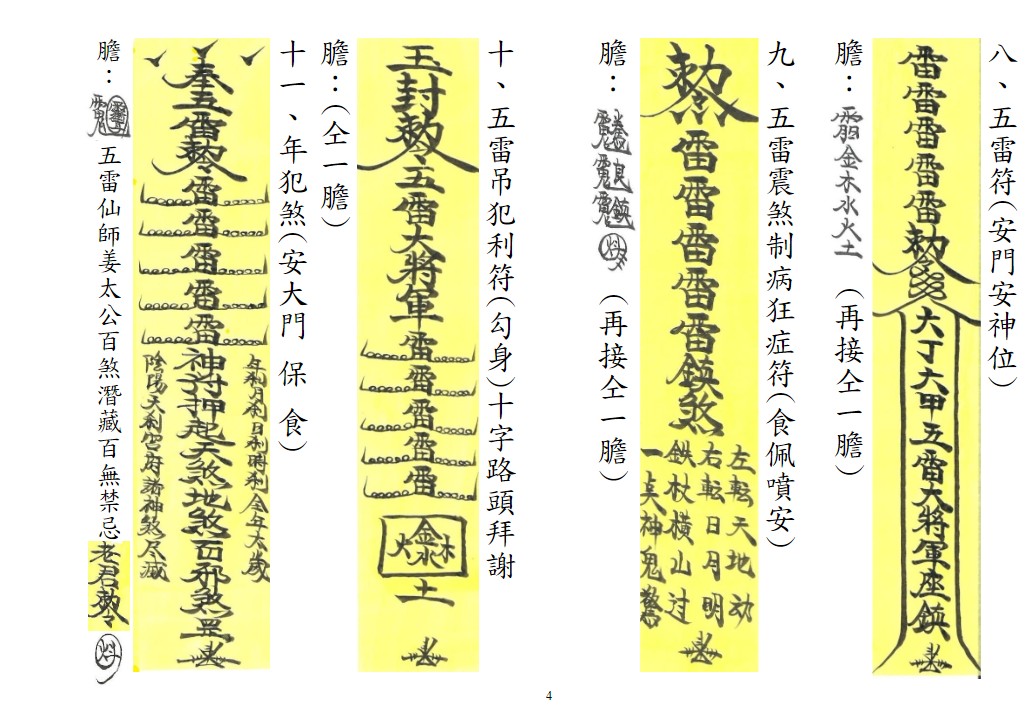 八、五雷符(安門安神位)
雷雷雷雷雷敕
六丁六甲五雷大將軍座鎮
膽：
金木水火土
(再接仝一膽)
九、五雷震煞制病狂症符(食佩噴安)
敕雷雷雷雷雷鎮煞
左転天地动
右転日月明
鉄杖横山过
一真神鬼驚
膽：
(再接仝一膽)
十、五雷吊犯利符(勾身)十字路頭拜謝
玉封敕令五雷大將軍雷雷雷雷雷
金木水火
土
膽：(仝一膽)
十一、年犯煞(安大門 保 食)
奉五雷敕令雷雷雷雷雷神符押起天煞地煞百邪煞
年利月利日利時利
年太歲
陰陽天利宮府諸神煞尽滅
膽：
五雷仙師姜太公百煞潛藏百無禁忌老君敕令
4